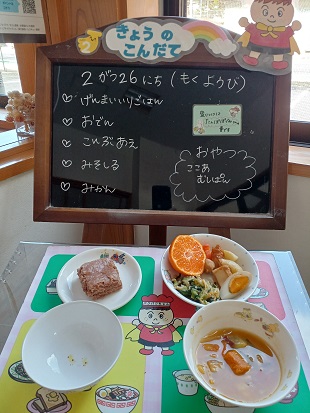 きょうの
こんだて
2がつ26にち（もくようび）
♡ げんまいいりごはん
♡ おでん
♡ こんぶあえ
♡ みそしる
♡ みかん
おやつ
ここあ
むしぱん